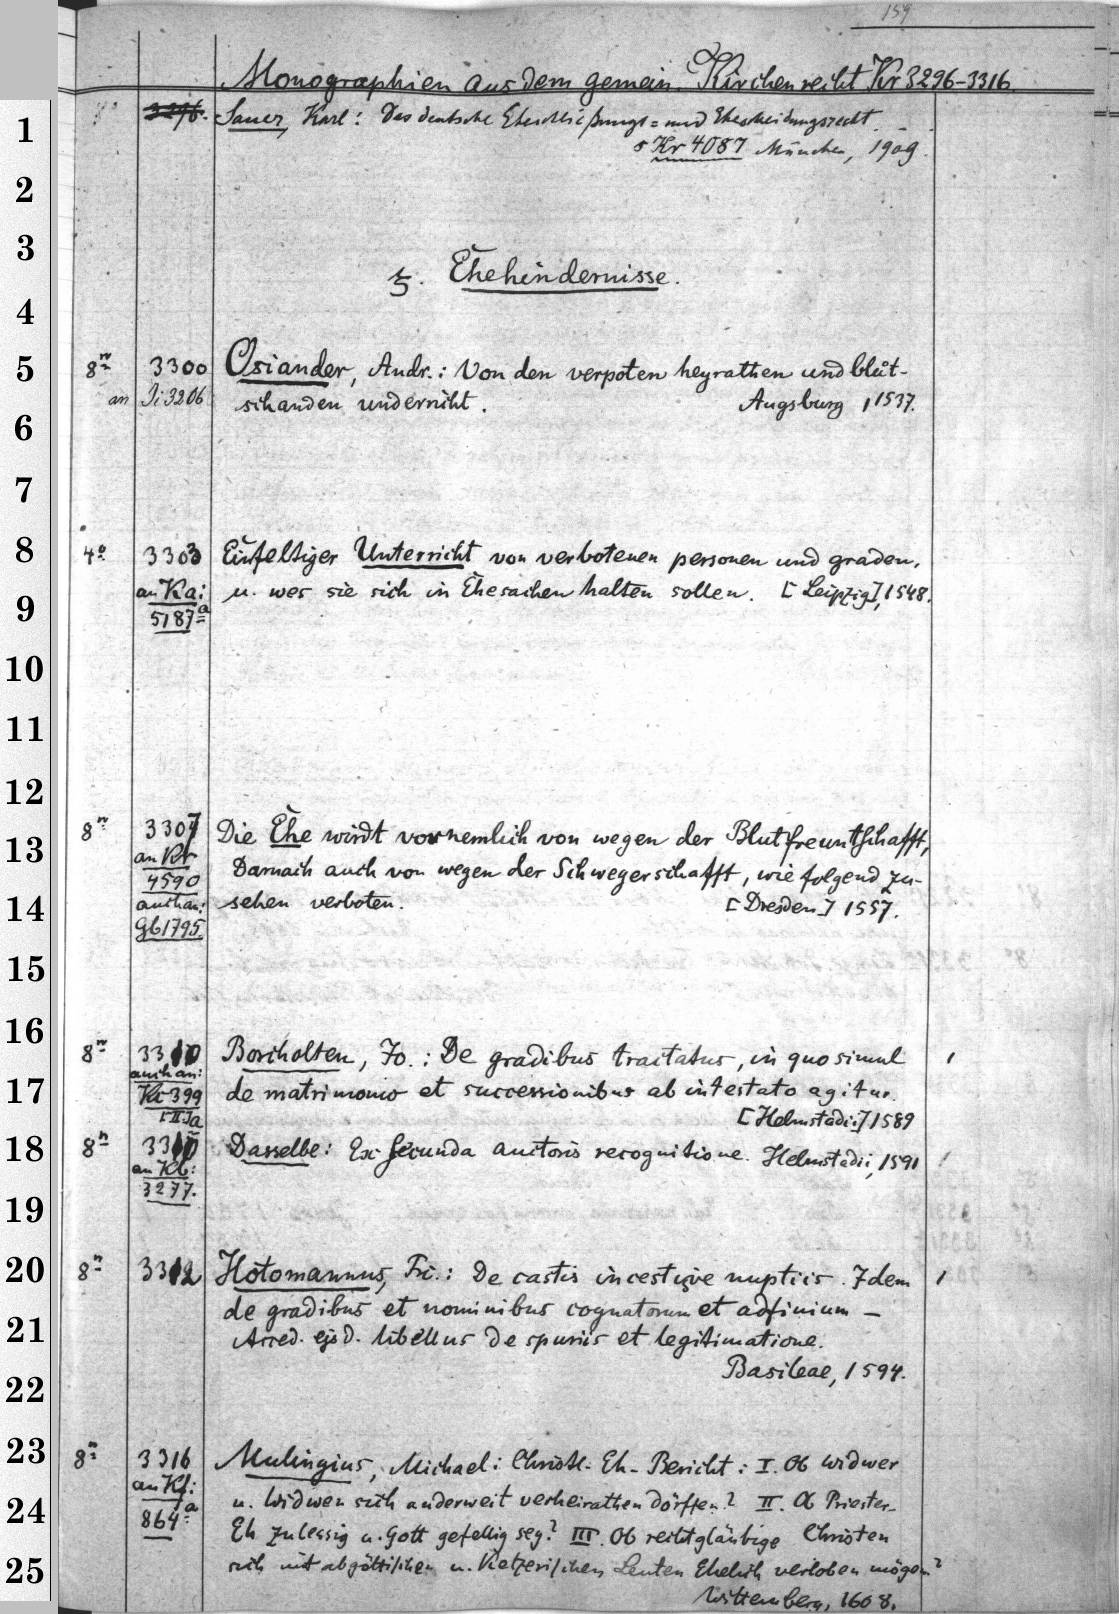 159
Monographien aus dem gemein. Kirchenrecht Kr 3296-3316.
3296. Sauer, Karl: Das deutsche Eheschließungs= und Ehescheidungsrecht.
s Kr 4087 München, 1909.
ξ. Ehehindernisse.
8º 3300 Osiander, Andr.: Von den verpoten heyrathen und blut-
an Ji 3206 schanden undernicht. Augsburg, 1537.
4º 3303 Einfeltiger Unterricht von verbotenen personen und graden,
an Ka: u. wes sie sich in Ehesachen halten sollen. [Leipzig], 1548.
5187a
8º 3307 Die Ehe wirdt vornemlich von wegen der Blutfreuntschafft,
an Kr Darnach auch von wegen der Schwegerschafft, wie folgend zu-
4590
auch an: sehen verboten. [Dresden] 1557.
Gb 1795.
8º 3310 Borcholten, Jo.: De gradibus tractatus, in quo simul
auch an:
Kc 399 de matrimonio et successionibus ab intestato agitur.
[II]a [Helmstadii] 1589
8º Dasselbe: Ex secunda auctoris recognitione. Helmstadii, 1591
an Kb:
3277.
8º 3312 Hotomannus, Fr.: De castis incestisve nuptiis. Idem
de gradibus et nominibus cognatorum et adfinium —
Acced. ejsd. libellus de spuriis et legitimatione.
Basileae, 1594.
8º 3316 Mulingius, Michael: Christl. Eh-Bericht: I. Ob widwer
an Kf: u. widwen sich anderweit verheirathen dörffen? II. Ob Priester-
864a Eh zulessig u. Gott gefellig sey? III. Ob rechtgläubige Christen
sich mit abgöttischen u. Ketzerischen Leuten Ehelich verloben mögen?
Wittemberg, 1608.
1
2
3
4
5
6
7
8
9
10
11
12
13
14
15
16
17
18
19
20
21
22
23
24
25